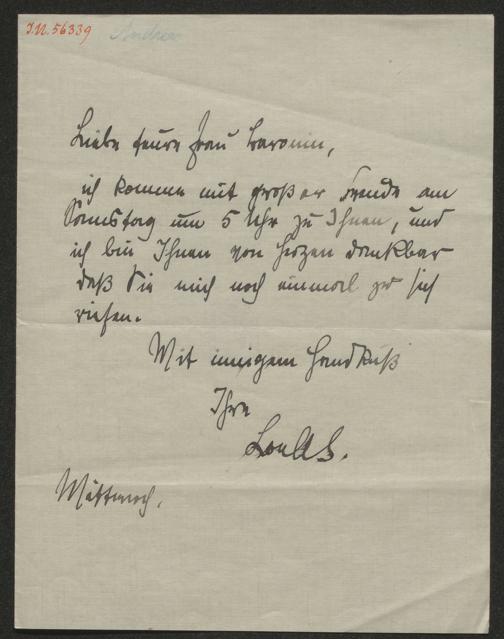 I.N. 56339 Andreas
Liebe teure Frau Baronin,
ich komme mit großer Freude am
Samstag um 5 Uhr zu Ihnen, und
ich bin Ihnen von Herzen dankbar
daß Sie mich noch einmal zu sich
riefen.
Mit innigem Handkuß
Ihre
Lou A S.
Mittwoch.